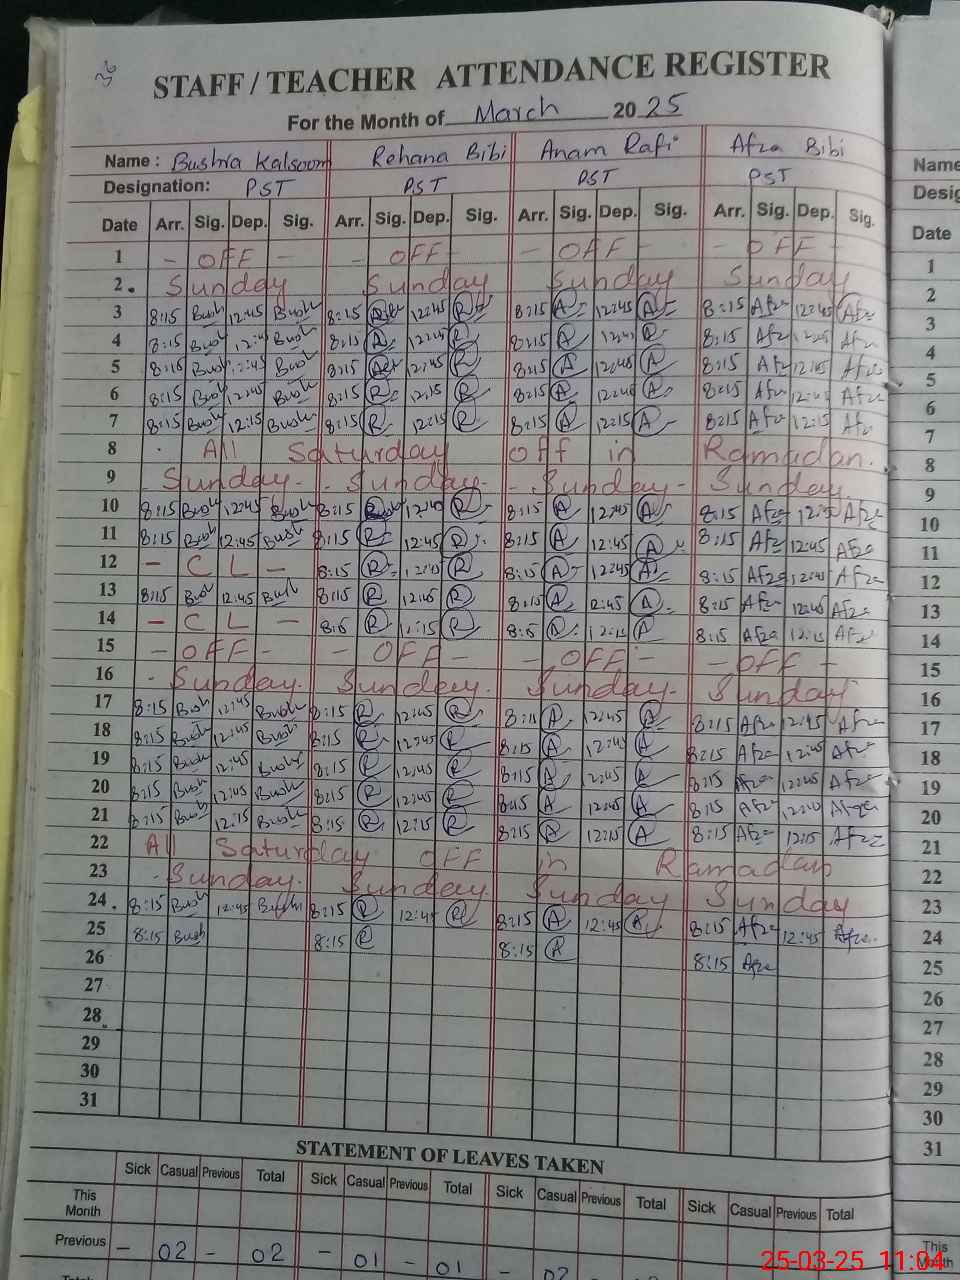 STAFF / TEACHER ATTENDANCE REGISTER
For the Month of March 2025
Name : Bushra Kalsoom Rehana Bibi Anam Rafi Afza Bibi Name
Designation: PST PST PST PST Desig
Date Arr. Sig. Dep. Sig. Arr. Sig. Dep. Sig. Arr. Sig. Dep. Sig. Arr. Sig. Dep. Sig. Date
1 - OFF - - OFF - - OFF - - OFF - 1
2. Sunday Sunday Sunday Sunday 2
3 8:15 Bush 12:45 Bush 8:15 R 12:45 R 8:15 A 12:45 A 8:15 Afza 12:45 Afza 3
4 8:15 Bush 12:45 Bush 8:15 R 12:45 R 8:15 A 12:45 A 8:15 Afza 12:45 Afza 4
5 8:15 Bush 12:45 Bush 8:15 12:45 R 8:15 A 12:45 A 8:15 Afza 12:45 Afza 5
6 8:15 Bush 12:45 Bush 8:15 R 12:15 R 8:15 A 12:45 A 8:15 Afza 12:45 Afza 6
7 8:15 Bush 12:15 Bush 8:15 R 12:15 R 8:15 A 12:15 A 8:15 Afza 12:15 Afza 7
8 All Saturday off in Ramadan. 8
9 Sunday - Sunday - Sunday - Sunday 9
10 8:15 Bush 12:45 Bush 8:15 12:40 R 8:15 A 12:45 A 8:15 Afza 12:45 Afza 10
11 8:15 Bush 12:45 Bush 8:15 R 12:45 R 8:15 A 12:45 A 8:15 Afza 12:45 Afza 11
12 - C L - 8:15 R 12:45 R 8:15 A 12:45 A 8:15 Afza 12:45 Afza 12
13 8:15 Bush 12:45 Bush 8:15 R 12:45 R 8:15 A 12:45 A 8:15 Afza 12:45 Afza 13
14 - C L - R 12:15 R A 12:15 A 8:15 Afza 12:15 Afza 14
15 - OFF - - OFF - - OFF - - OFF - 15
16 - Sunday. Sunday. Sunday - Sunday 16
17 8:15 Bush 12:45 Bush 8:15 R 12:45 R 8:15 A 12:45 A 8:15 Afza 12:45 Afza 17
18 8:15 Bush 12:45 Bush 8:15 R 12:45 R 8:15 A 12:45 A 8:15 Afza 12:45 Afza 18
19 8:15 Bush 12:45 Bush 8:15 R 12:45 R 8:15 A 12:45 A 8:15 Afza 12:45 Afza 19
20 8:15 Bush 12:45 Bush 8:15 R 12:45 R 8:15 A 12:45 A 8:15 Afza Afza 20
21 8:15 Bush 12:15 Bush 8:15 R 12:15 R 8:15 A 12:15 A 8:15 Afza 12:15 Afza 21
22 All Saturday OFF in Ramadan 22
23 - Sunday. Sunday Sunday Sunday 23
24. 8:15 Bush 12:45 Bush 8:15 R 12:45 R 8:15 A 12:45 A 8:15 Afza 12:45 Afza 24
25 8:15 Bush 8:15 R 8:15 A 8:15 Afza 25
26 26
27 27
28 28
29 29
30 30
31 31
STATEMENT OF LEAVES TAKEN
Sick Casual Previous Total Sick Casual Previous Total Sick Casual Previous Total Sick Casual Previous Total
This Month This Month
Previous - 02 - 02 - 01 - 01 - 02
25-03-25 11:04